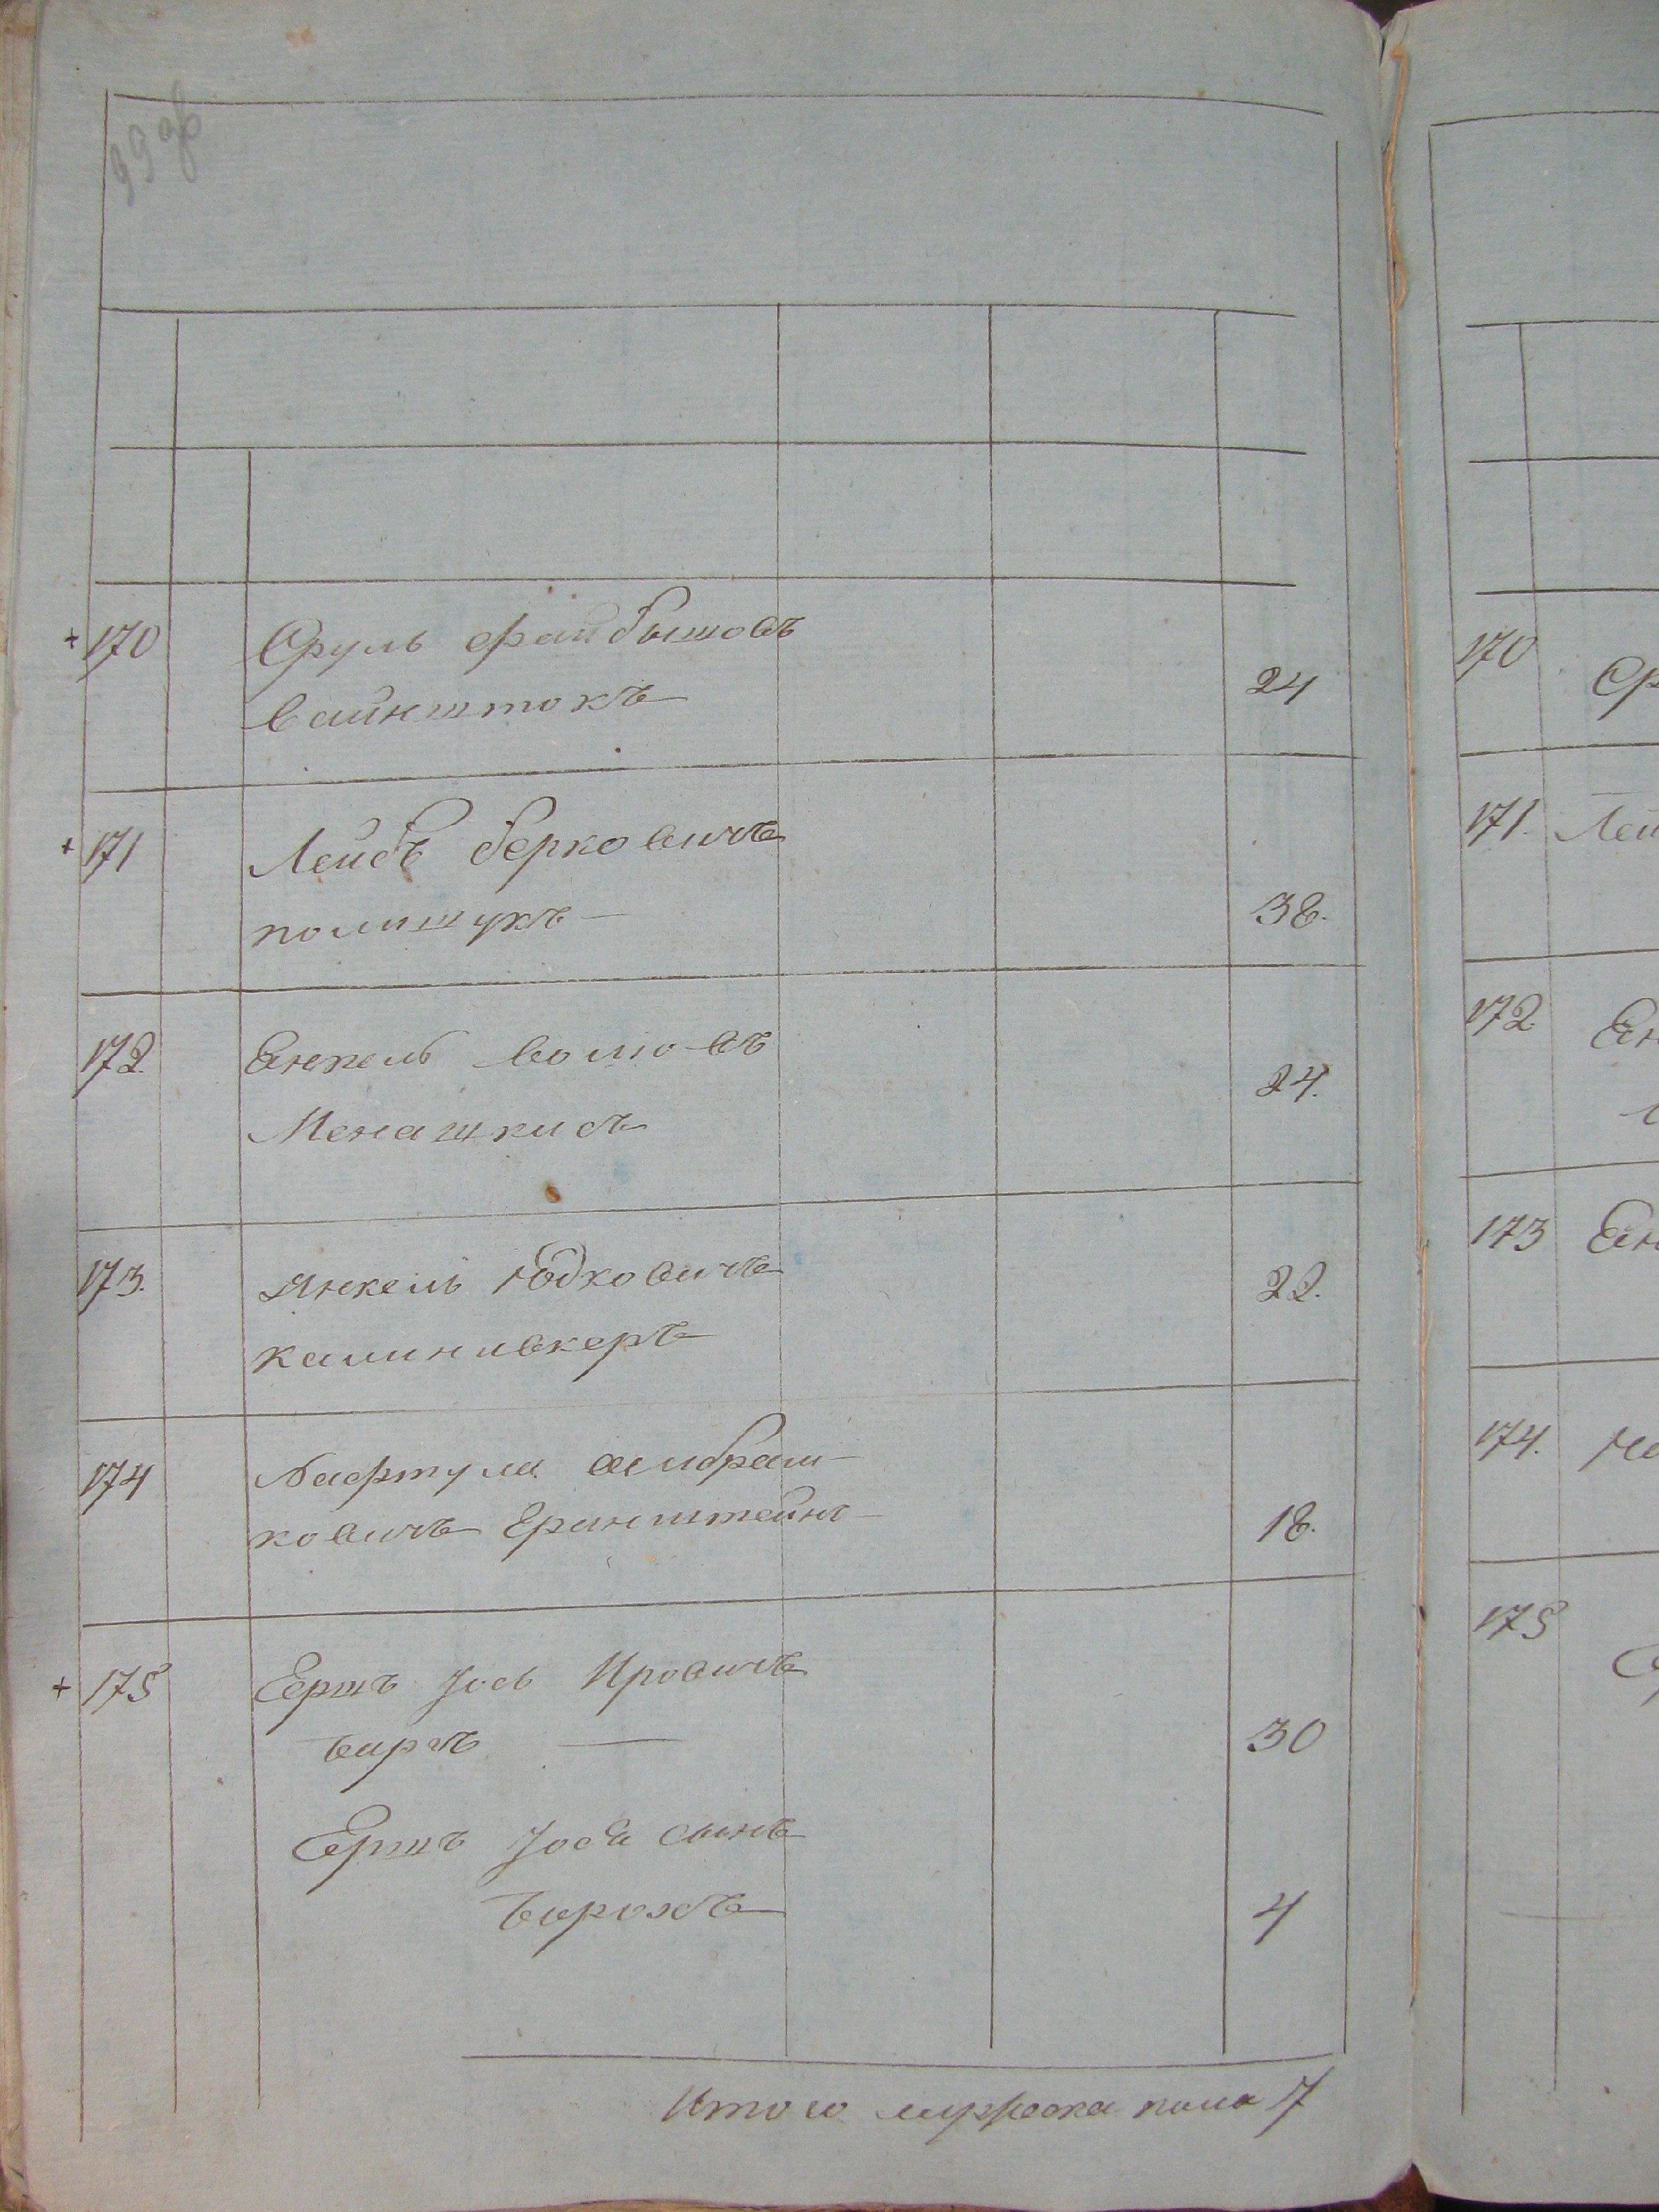 99 об
+ 170 Сруль Файбышовъ
Вайнштокъ 24
+ 171 Лейбъ Берковичъ
Полищукъ — 38.
172. Енкель Волковъ
Менашкисъ 24.
173. Янкель Юдковичъ 22.
Калинивкеръ
174 Нафтула
ковичъ Еринштейнъ 18.
+ 175 Ершъ Іось Ировичъ
30
Ершъ Іося сынъ
4
Итого мужеска пола 7
170
Ср
171. Лей
172 Ен
173 Ен
174. На
175